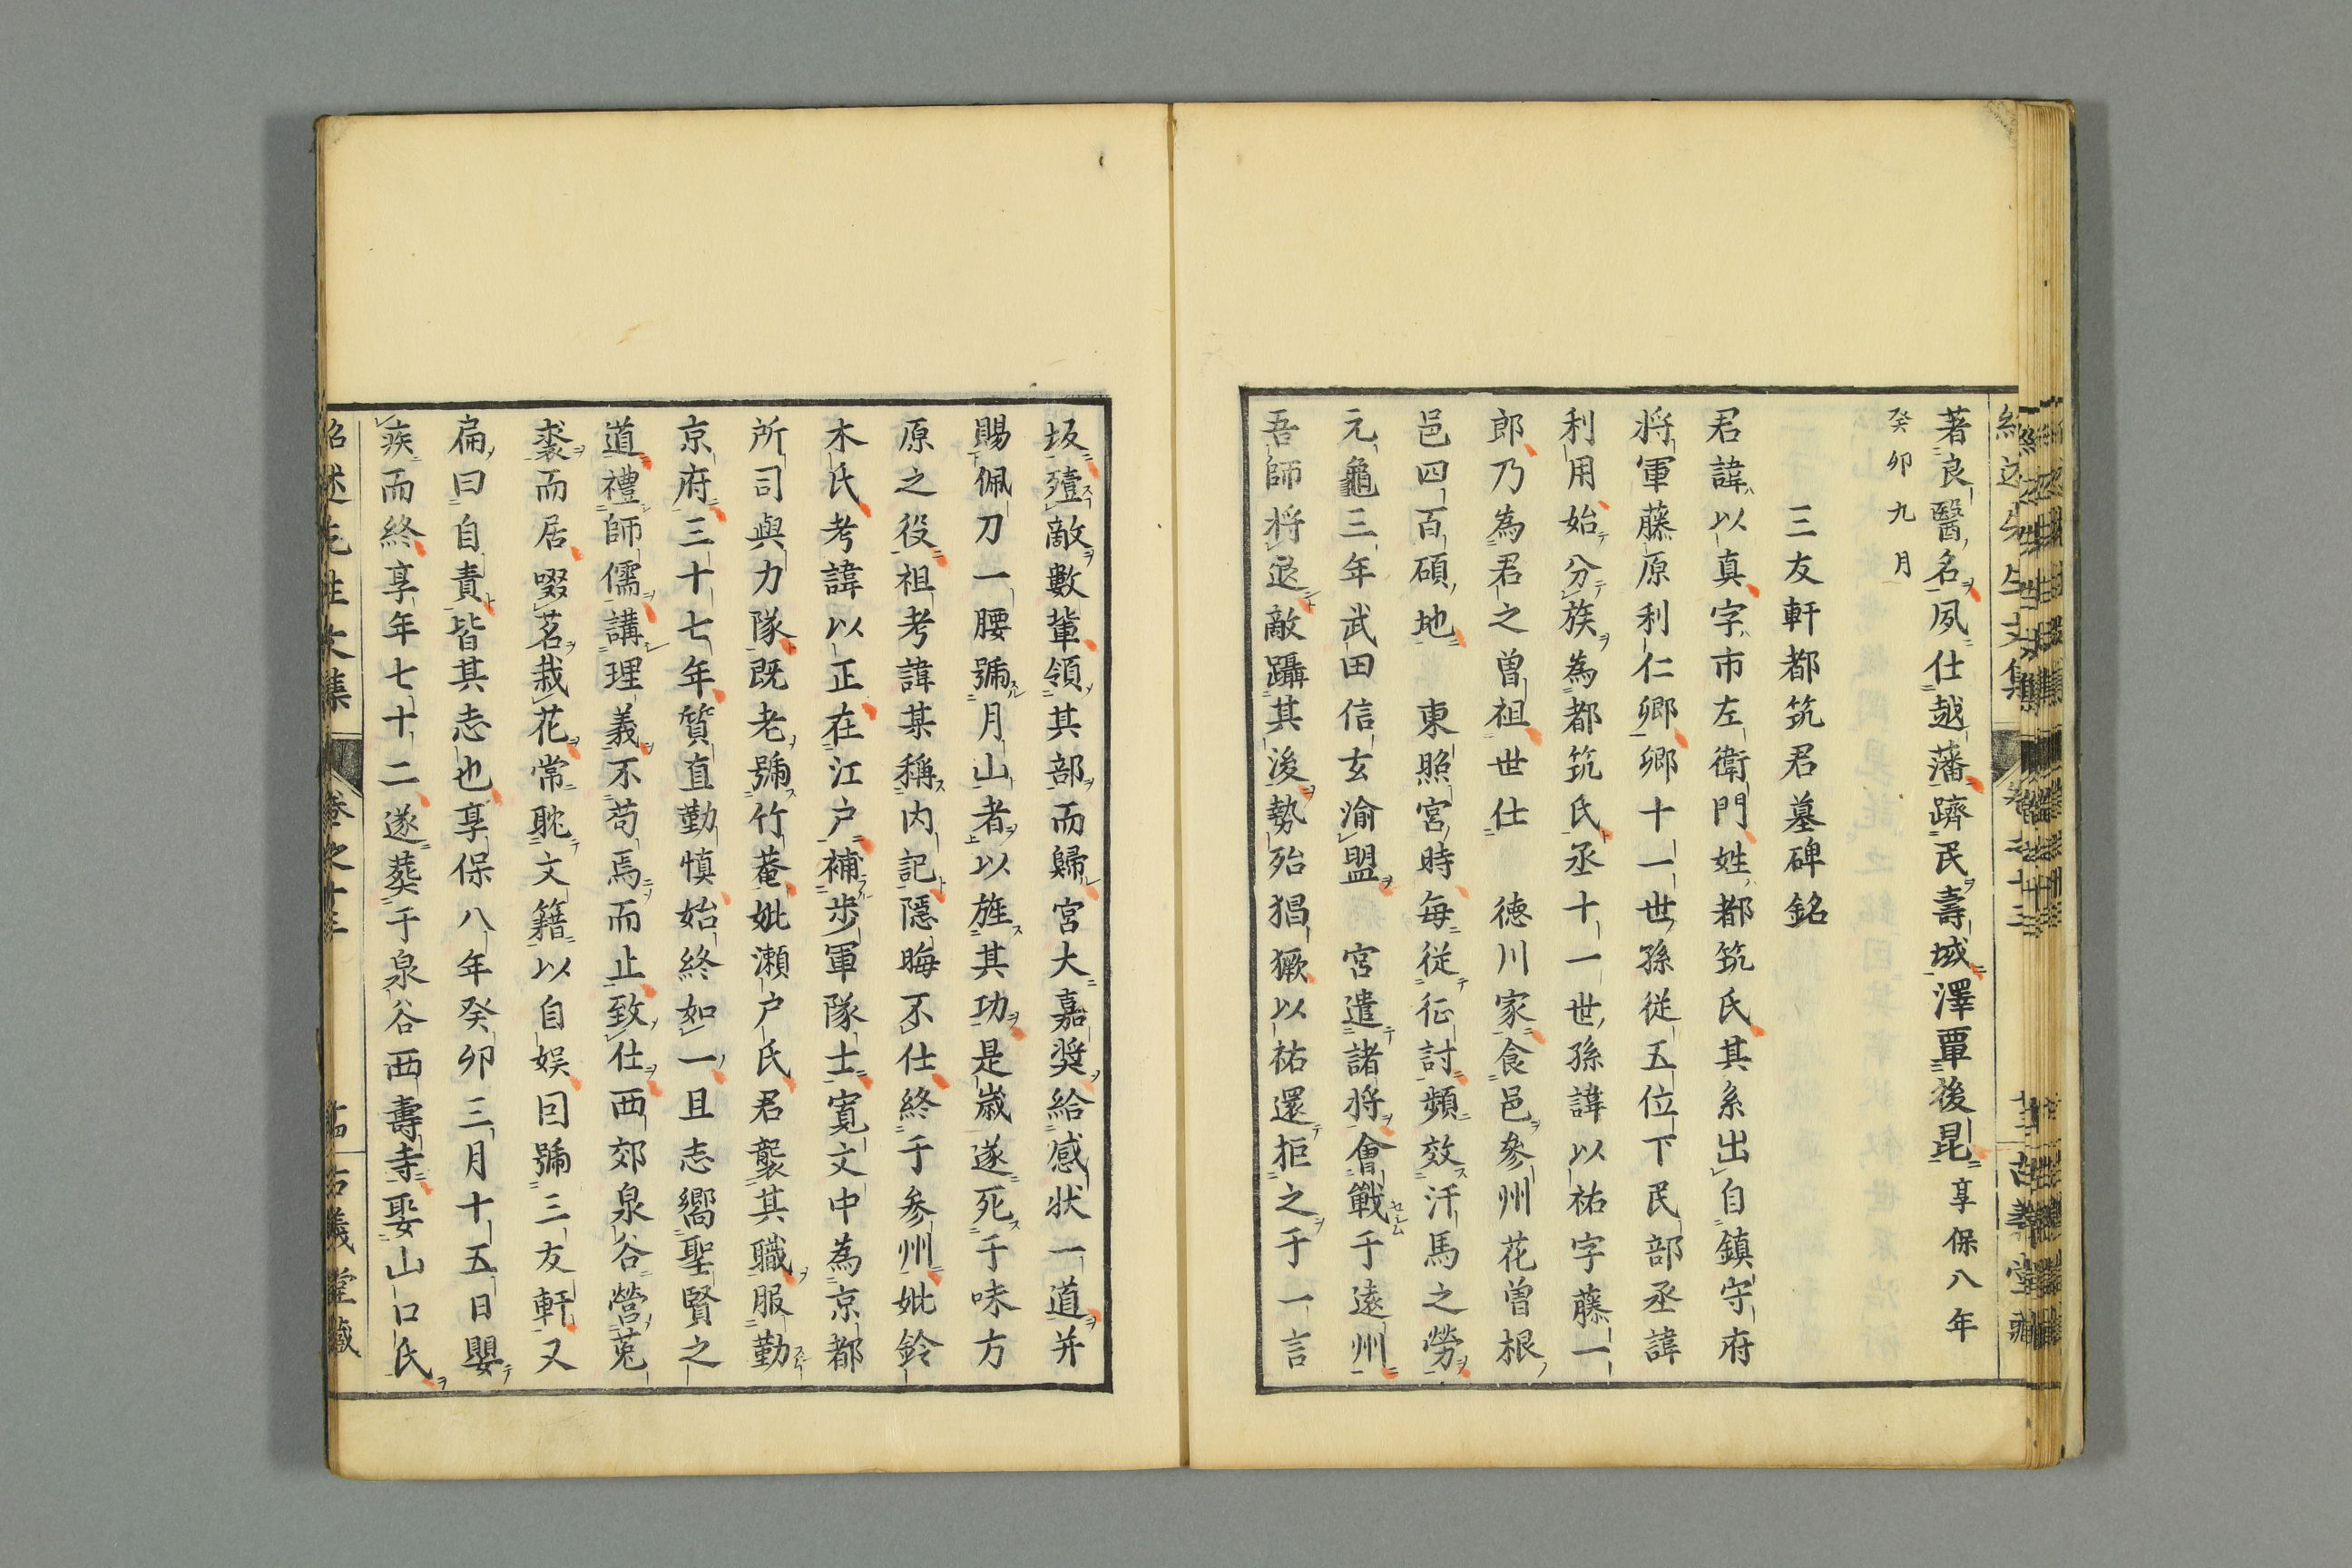 著良醫名夙仕越藩躋民壽域澤覃後昆享保八年
癸卯九月
三友軒都筑君墓碑銘
君諱以真字市左衛門姓都筑氏其系出自鎮守府
将軍藤原利仁卿卿十一世孫従五位下民部丞諱
利用始分族為都筑氏丞十一世孫諱以祐字藤一
郎乃為君之曽祖世仕　徳川家食邑參州花曽根
邑四百碩地　東照宮時毎従征討頻效汗馬之勞
元龜三年武田信玄渝盟　宮遣諸将會戰于遠州
吾師将退敵躡其後勢殆猖獗以祐還拒之于一言
坂殪敵數軰領其部而歸宮大嘉奨給感状一道并
賜佩刀一腰號月山者以旌其功是歳遂死于味方
原之役祖考諱某稱内記隱晦不仕終于参州妣鈴
木氏考諱以正在江户補歩軍隊士寛文中為京都
所司與力隊既老號竹菴妣瀬户氏君襲其職服勤
京府三十七年質直勤慎始終如一且志嚮聖賢之
道禮師儒講理義不苟焉而止致仕西郊泉谷營菟
裘而居啜茗栽花常耽文籍以自娯因號三友軒又
扁曰自責皆其志也享保八年癸卯三月十五日嬰
疾而終享年七十二遂葬于泉谷西壽寺娶山口氏
紹述先生文集　卷之十三　古義堂藏